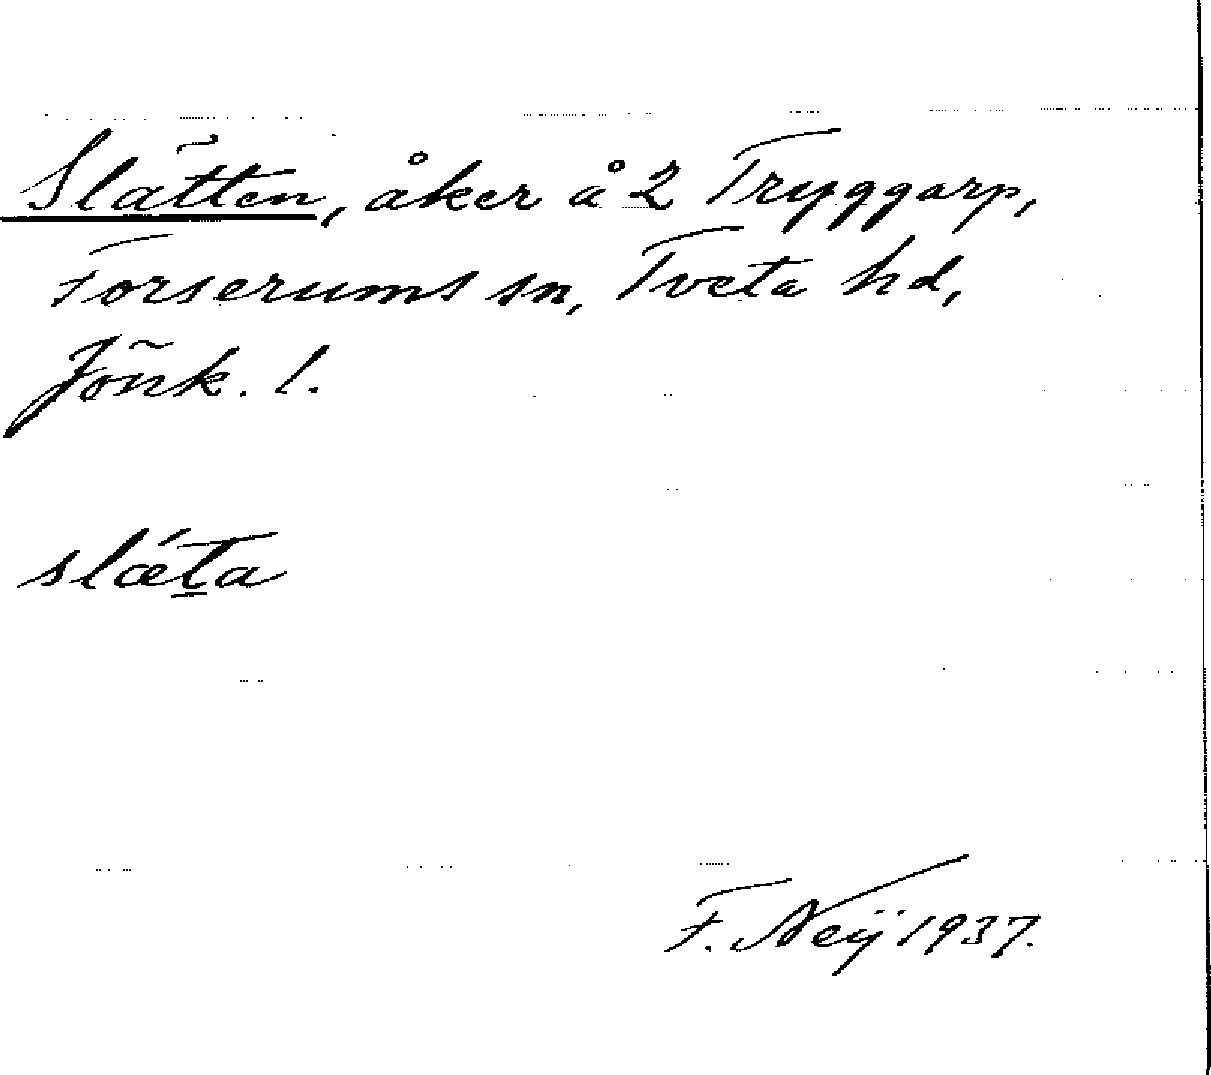 Slätten, åker å 2 Tryggarp,
Forserums sn, Tveta hd,
Jönk. l.
slǽt̠a
F. Neij 1937.